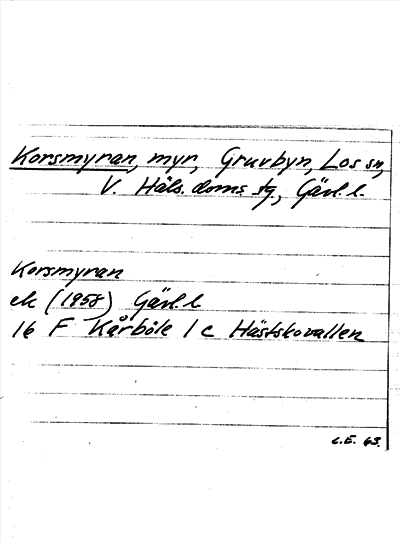 Korsmyran, myr, Gruvbyn, Los sn,
V. Häls. doms. tg, Gävl. l.
Korsmyran
ek (1958) Gävl. l
16 F Kårböle 1 c Hästskovallen
L.E. 63.